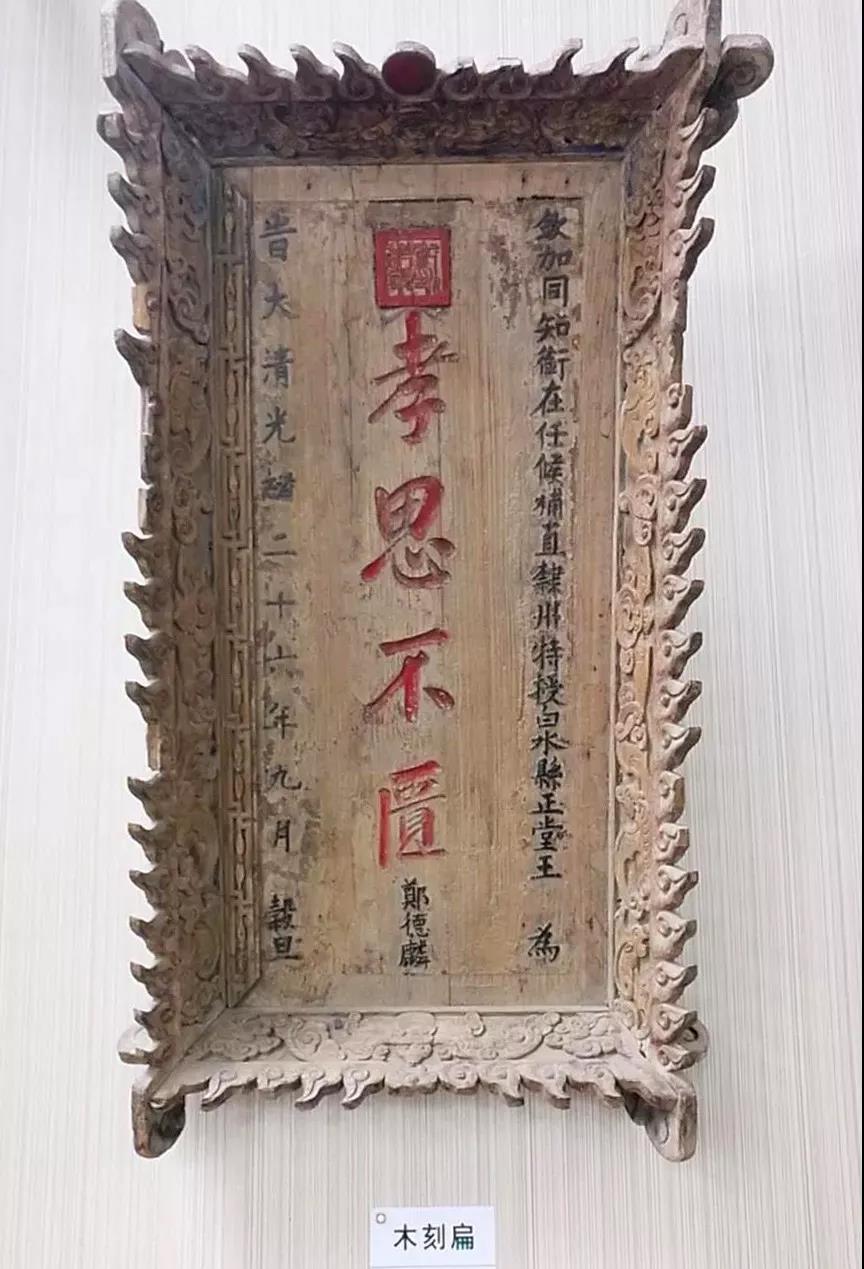 欽加同知銜在任候補直隸州特授白水縣正堂王 為
孝思不匱
鄭德麟
旹大清光緒二十六年九月 穀旦
木刻扁